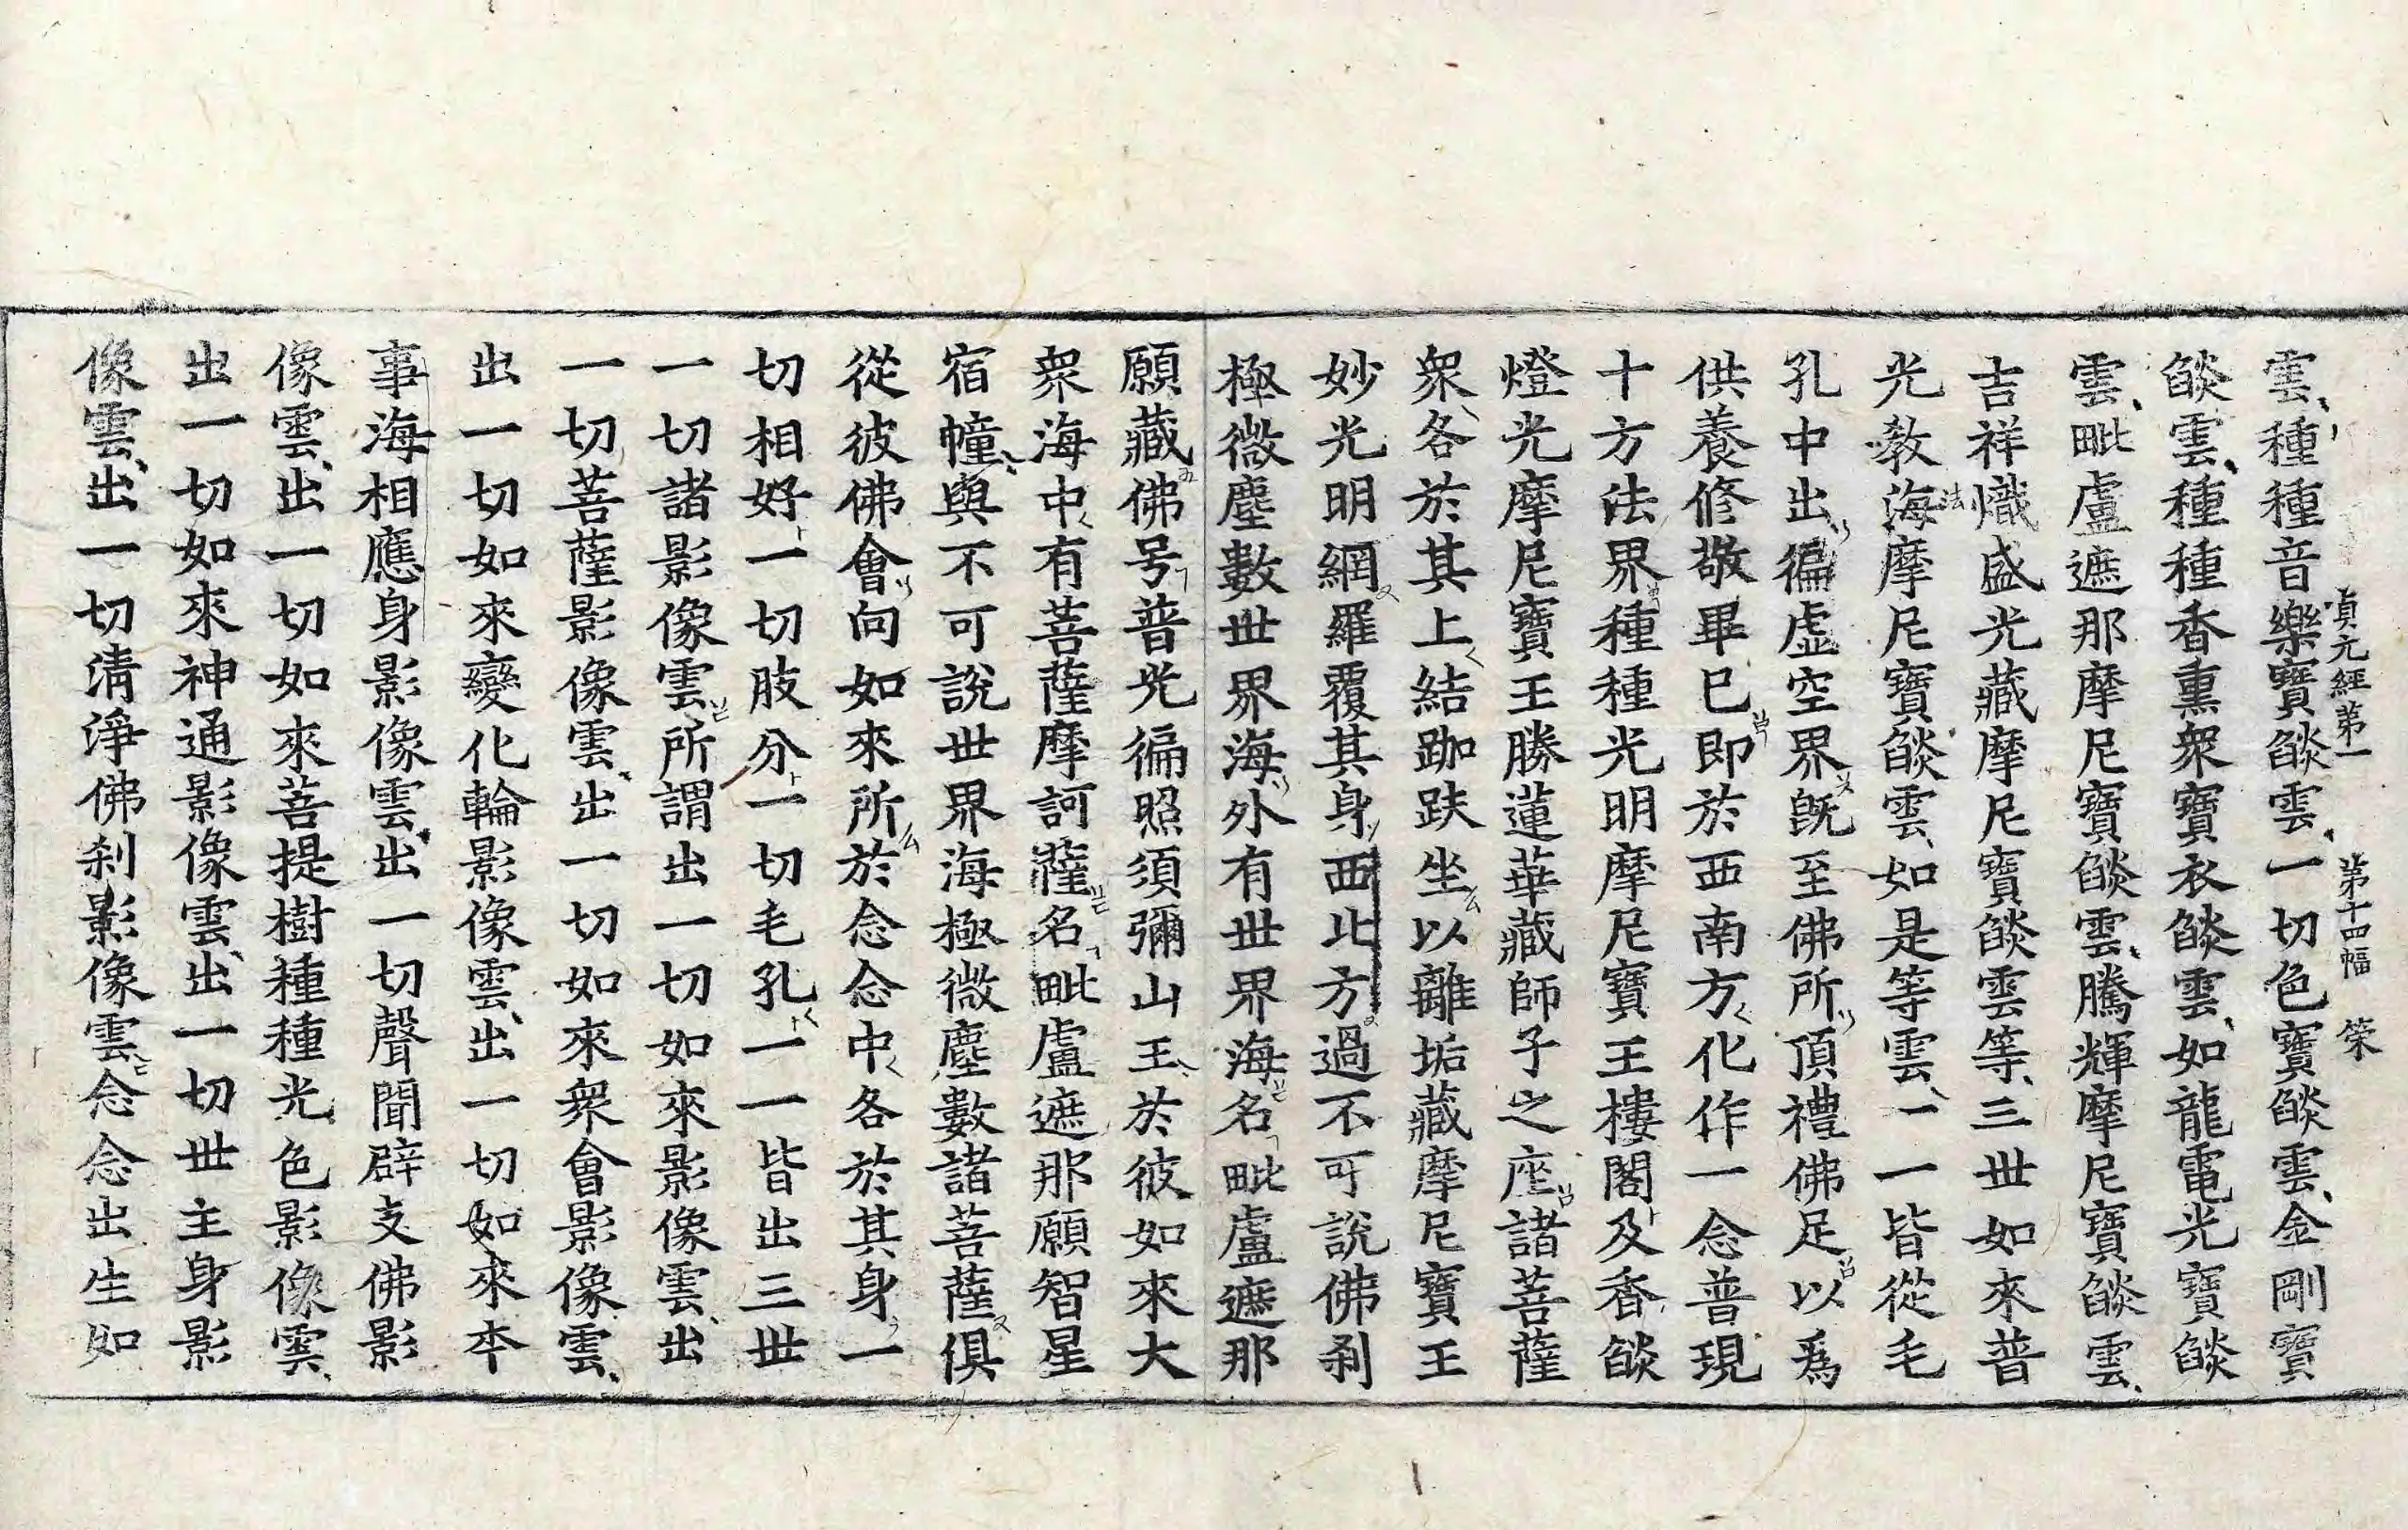 雲種種音樂寶燄雲一切色寶燄雲金剛寶
貞元經第一 第十四幅 榮
燄雲種種香熏衆寶衣燄雲如龍電光寶燄
雲毗盧遮那摩尼寶燄雲騰輝摩尼寶燄雲
吉祥熾盛光藏摩尼寶燄雲等三世如來普
光教海摩尼寶燄雲如是等雲一一皆從毛
法
孔中出徧虛空界旣至佛所頂禮佛足以爲
供養修敬畢已即於西南方化作一念普現
十方法界種種光明摩尼寶王樓閣及香燄
燈光摩尼寶王勝蓮華藏師子之座諸菩薩
衆各於其上結跏趺坐以離垢藏摩尼寶王
妙光明網羅覆其身西北方過不可說佛刹
極微塵數世界海外有世界海名毗盧遮那
願藏佛号普光徧照須彌山王於彼如來大
衆海中有菩薩摩訶薩名毗盧遮那願智星
宿幢與不可說世界海極微塵數諸菩薩俱
從彼佛會向如來所於念念中各於其身一
切相好一切肢分一切毛孔一一皆出三世
一切諸影像雲所謂出一切如來影像雲出
一切菩薩影像雲出一切如來衆會影像雲
出一切如來變化輪影像雲出一切如來本
事海相應身影像雲出一切聲聞辟支佛影
像雲出一切如來菩提樹種種光色影像雲
出一切如來神通影像雲出一切世主身影
像雲出一切清淨佛刹影像雲念念出生如